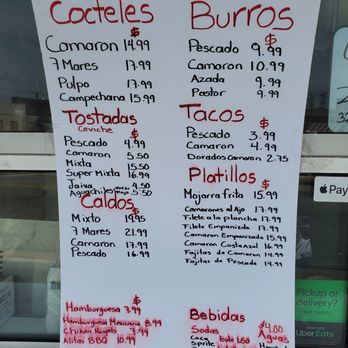 Cocteles
$
Camaron 14.99
7 Mares 17.99
Pulpo 17.99
Campechana 15.99
Tostadas
Ceviche $
Pescado 4.99
Camaron 5.50
Mixta 15.50
Super Mixta 16.99
Jaiva 4.50
Aguachiles 5.50
Caldos
$
Mixto 19.95
7 Mares 21.99
Camaron 17.99
Pescado 16.99
$
Hamburguesa 7.99
Hamburguesa Mexicana 8.99
Chiken Nugets 7.99
Alitas BBQ 10.99
Burros
$
Pescado 9.99
Camaron 10.99
Azada 9.99
Pastor 9.99
Tacos
$
Pescado 3.99
Camaron 4.99
Dorados Camaron 2.75
Platillos
$
Mojarra frita 15.99
Camarones al Ajo 17.99
Filete a la plancha 17.99
Filete Empanizado 17.99
Camaron Empanizado 15.99
Camaron Costa Azul 16.99
Fajitas de Camaron 14.99
Fajitas de Pescado 14.99
Bebidas
$
Sodas $4.00
Coca Aguas
Sprite
Pay
Pickup or
delivery?
YOUR CHOICE
Uber Eats